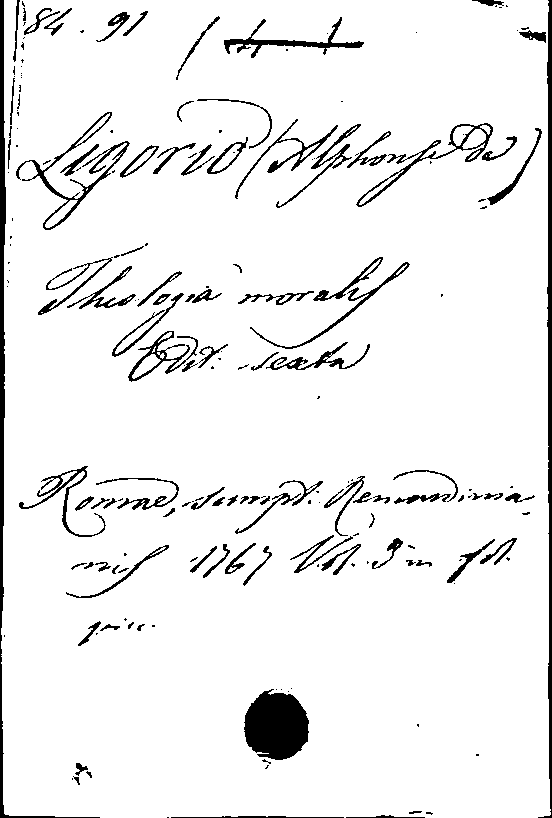 84. 91
Ligorio (Alphonse de)
Theologia moralis
Edit. sexta
Romae, sumpt. Remondinia-
nis 1767 Vol. 3 in fol.